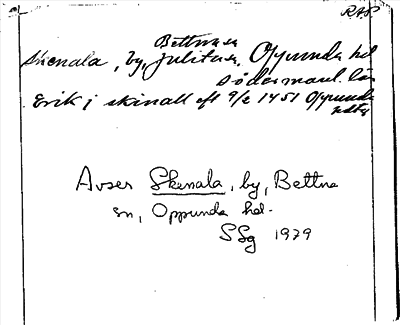 RAP
Bettna sn
Skenala, by, Julita sn, Oppunda hd
Södermanl. län
Erik j skinall eft 9/2 1451 Oppunda
Avser Skenala, by, Bettna
sn, Oppunda hd.
SSg 1979